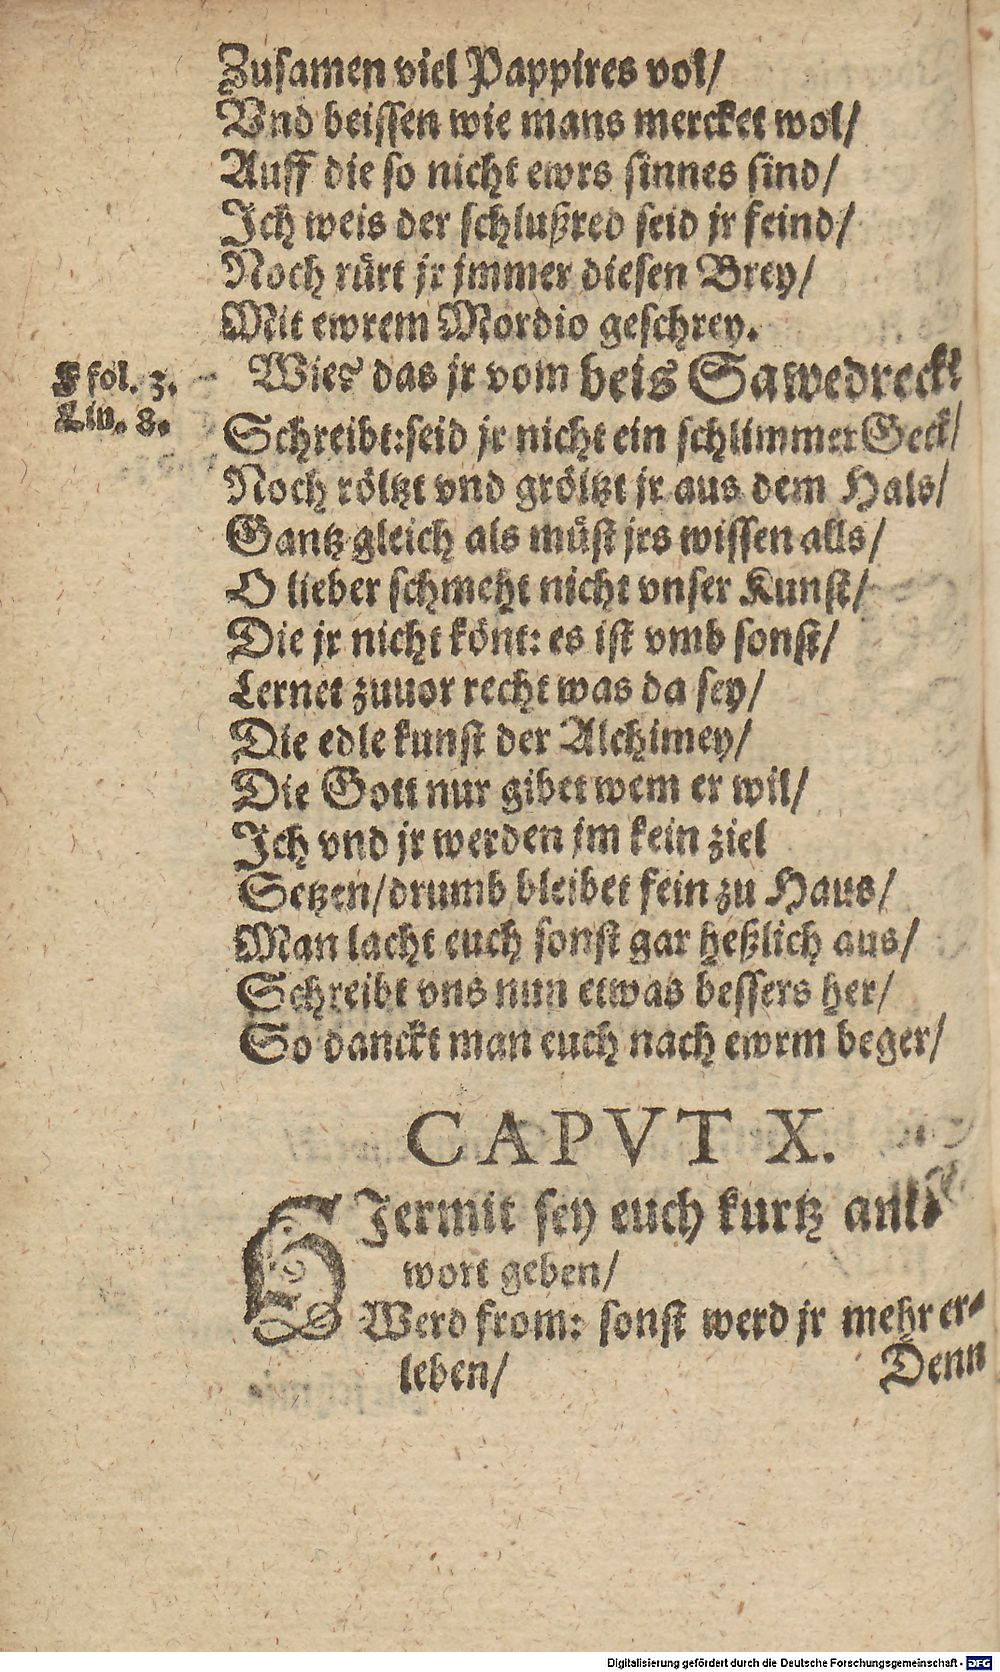 Zusamen viel Pappires vol/
Vnd beissen wie mans mercket wol/
Auff die so nicht ewrs sinnes sind/
Ich weis der schlußred seid jr feind/
Noch rürt jr jmmer diesen Brey/
Mit ewrem Mordio geschrey.
F fol. 3.
Lin. 8.
Wie? das jr vom heis Sawedreck
Schreibt: seid jr nicht ein schlimmer Geck/
Noch röltzt vnd gröltzt jr aus dem Hals/
Gantz gleich als müst jrs wissen alls/
O lieber schmeht nicht vnser Kunst/
Die jr nicht könt: es ist vmb sonst/
Lernet zuuor recht was da sey/
Die edle kunst der Alchimey/
Die Gott nur gibet wem er wil/
Ich vnd jr werden jm kein ziel
Setzen/ drumb bleibet fein zu Haus/
Man lacht euch sonst gar heßlich aus/
Schreibt vns nun etwas bessers her/
So danckt man euch nach ewrm beger/
CAPVT X.
HIermit sey euch kurtz ant-
wort geben/
Werd from: sonst werd jr mehr er-
leben/
Denn
Digitalisierung gefördert durch die Deutsche Forschungsgemeinschaft - DFG